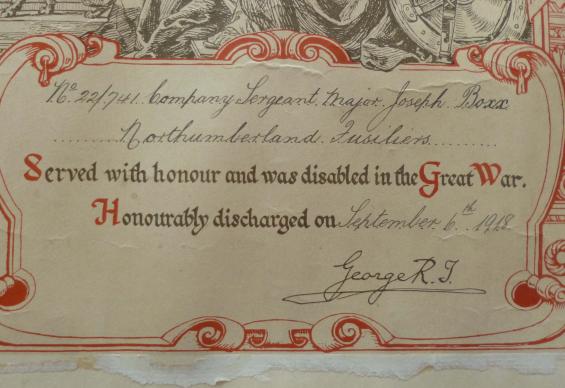 No 22/741. Company Sergeant. Major. Joseph Boxx
Northumberland. Fusiliers
Served with honour and was disabled in the Great War.
Honourably discharged on September. 6th. 1918
George R.I.